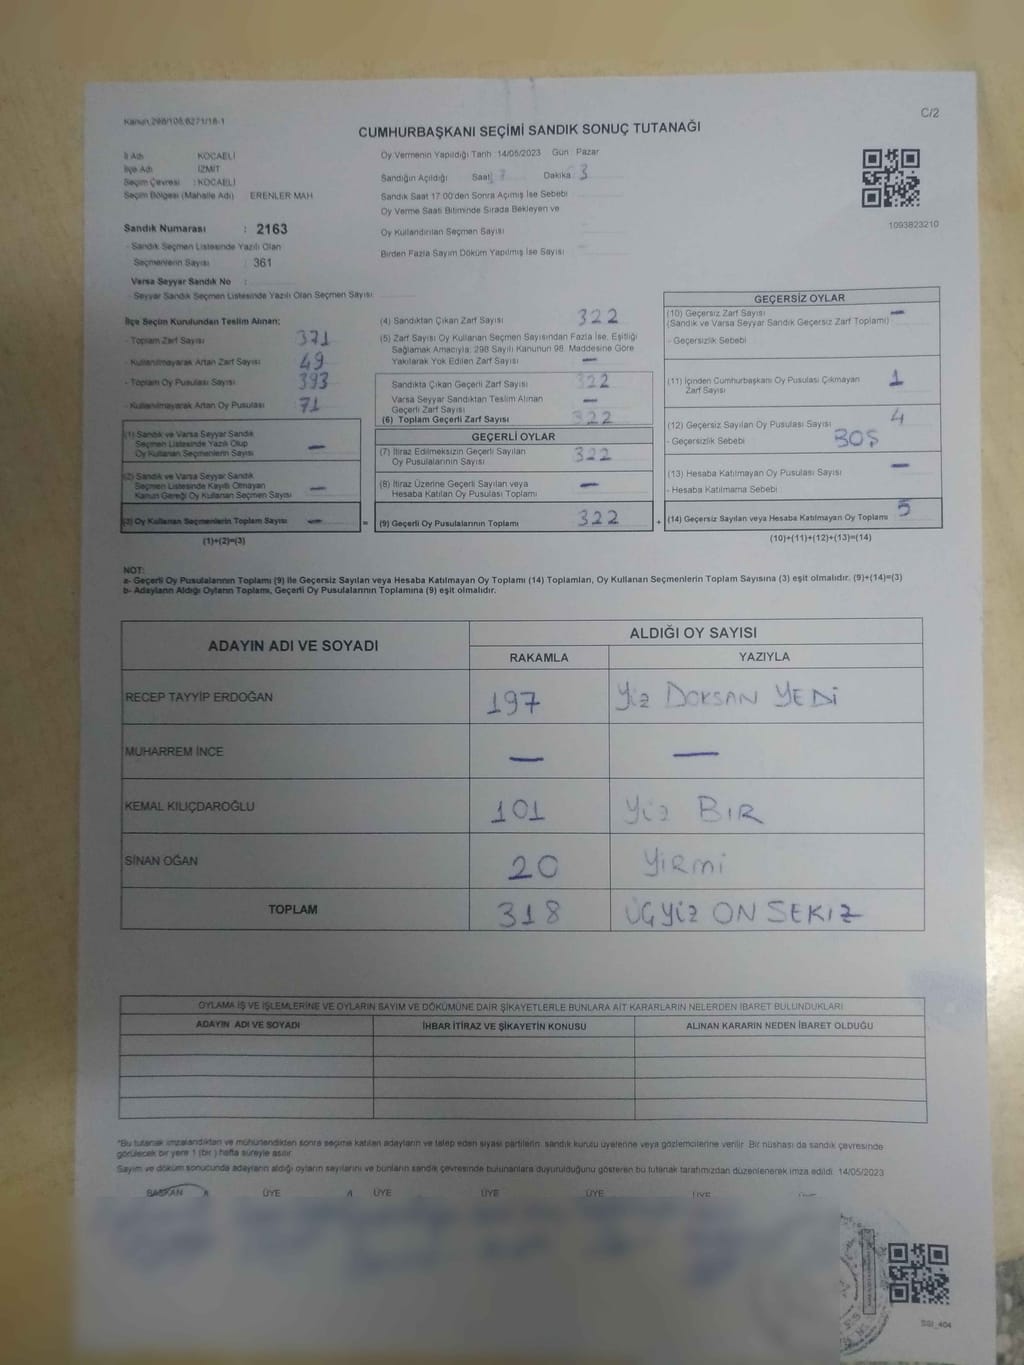 Kanun 298/108,6271/18-1
C/2
CUMHURBAŞKANI SEÇİMİ SANDIK SONUÇ TUTANAĞI
İl Adı KOCAELİ
İlçe Adı İZMİT
Seçim Çevresi : KOCAELİ
Seçim Bölgesi (Mahalle Adı) ERENLER MAH
Sandık Numarası : 2163
- Sandık Seçmen Listesinde Yazılı Olan
Seçmenlerin Sayısı : 361
Varsa Seyyar Sandık No :
- Seyyar Sandık Seçmen Listesinde Yazılı Olan Seçmen Sayısı:
Oy Vermenin Yapıldığı Tarih :14/05/2023 Gün : Pazar
Sandığın Açıldığı Saat Dakika 3
Sandık Saat 17:00'den Sonra Açılmış İse Sebebi
Oy Verme Saati Bitiminde Sırada Bekleyen ve
Oy Kullandırılan Seçmen Sayısı
Birden Fazla Sayım Döküm Yapılmış İse Sayısı
1093823210
İlçe Seçim Kurulundan Teslim Alınan;
- Toplam Zarf Sayısı 371
- Kullanılmayarak Artan Zarf Sayısı 49
- Toplam Oy Pusulası Sayısı 393
- Kullanılmayarak Artan Oy Pusulası 71
(1) Sandık ve Varsa Seyyar Sandık
Seçmen Listesinde Yazılı Olup
Oy Kullanan Seçmenlerin Sayısı —
(2) Sandık ve Varsa Seyyar Sandık
Seçmen Listesinde Kayıtlı Olmayan
Kanun Gereği Oy Kullanan Seçmen Sayısı —
(3) Oy Kullanan Seçmenlerin Toplam Sayısı —
(1)+(2)=(3)
(4) Sandıktan Çıkan Zarf Sayısı 322
(5) Zarf Sayısı Oy Kullanan Seçmen Sayısından Fazla İse, Eşitliği
Sağlamak Amacıyla; 298 Sayılı Kanunun 98. Maddesine Göre
Yakılarak Yok Edilen Zarf Sayısı —
Sandıkta Çıkan Geçerli Zarf Sayısı 322
Varsa Seyyar Sandıktan Teslim Alınan
Geçerli Zarf Sayısı —
(6) Toplam Geçerli Zarf Sayısı 322
GEÇERLİ OYLAR
(7) İtiraz Edilmeksizin Geçerli Sayılan
Oy Pusulalarının Sayısı 322
(8) İtiraz Üzerine Geçerli Sayılan veya
Hesaba Katılan Oy Pusulası Toplamı —
= (9) Geçerli Oy Pusulalarının Toplamı 322 +
GEÇERSİZ OYLAR
(10) Geçersiz Zarf Sayısı —
(Sandık ve Varsa Seyyar Sandık Geçersiz Zarf Toplamı)
- Geçersizlik Sebebi
(11) İçinden Cumhurbaşkanı Oy Pusulası Çıkmayan 1
Zarf Sayısı
(12) Geçersiz Sayılan Oy Pusulası Sayısı 4
- Geçersizlik Sebebi BOŞ
(13) Hesaba Katılmayan Oy Pusulası Sayısı —
- Hesaba Katılmama Sebebi
(14) Geçersiz Sayılan veya Hesaba Katılmayan Oy Toplamı 5
(10)+(11)+(12)+(13)=(14)
NOT:
a- Geçerli Oy Pusulalarının Toplamı (9) ile Geçersiz Sayılan veya Hesaba Katılmayan Oy Toplamı (14) Toplamları, Oy Kullanan Seçmenlerin Toplam Sayısına (3) eşit olmalıdır. (9)+(14)=(3)
b- Adayların Aldığı Oyların Toplamı, Geçerli Oy Pusulalarının Toplamına (9) eşit olmalıdır.
ADAYIN ADI VE SOYADI
ALDIĞI OY SAYISI
RAKAMLA YAZIYLA
RECEP TAYYİP ERDOĞAN 197 Yüz DOKSAN YEDİ
MUHARREM İNCE — —
KEMAL KILIÇDAROĞLU 101 Yüz BİR
SİNAN OĞAN 20 Yirmi
TOPLAM 318 ÜÇ Yüz ON SEKİZ
OYLAMA İŞ VE İŞLEMLERİNE VE OYLARIN SAYIM VE DÖKÜMÜNE DAİR ŞİKAYETLERLE BUNLARA AİT KARARLARIN NELERDEN İBARET BULUNDUKLARI
ADAYIN ADI VE SOYADI İHBAR İTİRAZ VE ŞİKAYETİN KONUSU ALINAN KARARIN NEDEN İBARET OLDUĞU
*Bu tutanak imzalandıktan ve mühürlendikten sonra seçime katılan adayların ve talep eden siyasi partilerin sandık kurulu üyelerine veya gözlemcilerine verilir. Bir nüshası da sandık çevresinde
görülecek bir yere 1 (bir ) hafta süreyle asılır.
Sayım ve döküm sonucunda adayların aldığı oyların sayılarını ve bunların sandık çevresinde bulunanlara duyurulduğunu gösteren bu tutanak tarafımızdan düzenlenerek imza edildi. 14/05/2023
BAŞKAN ÜYE ÜYE ÜYE ÜYE ÜYE
SSI_404